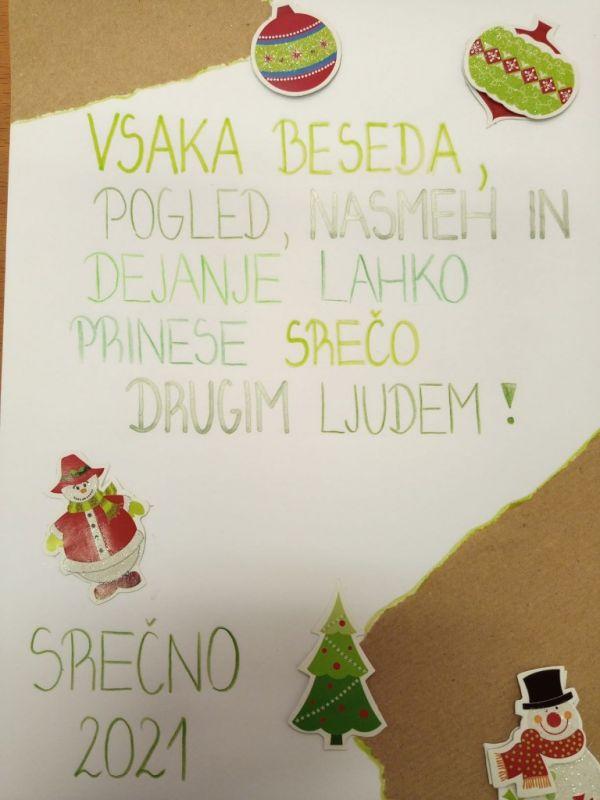 VSAKA BESEDA,
POGLED, NASMEH IN
DEJANJE LAHKO
PRINESE SREČO
DRUGIM LJUDEM!
SREČNO
2021